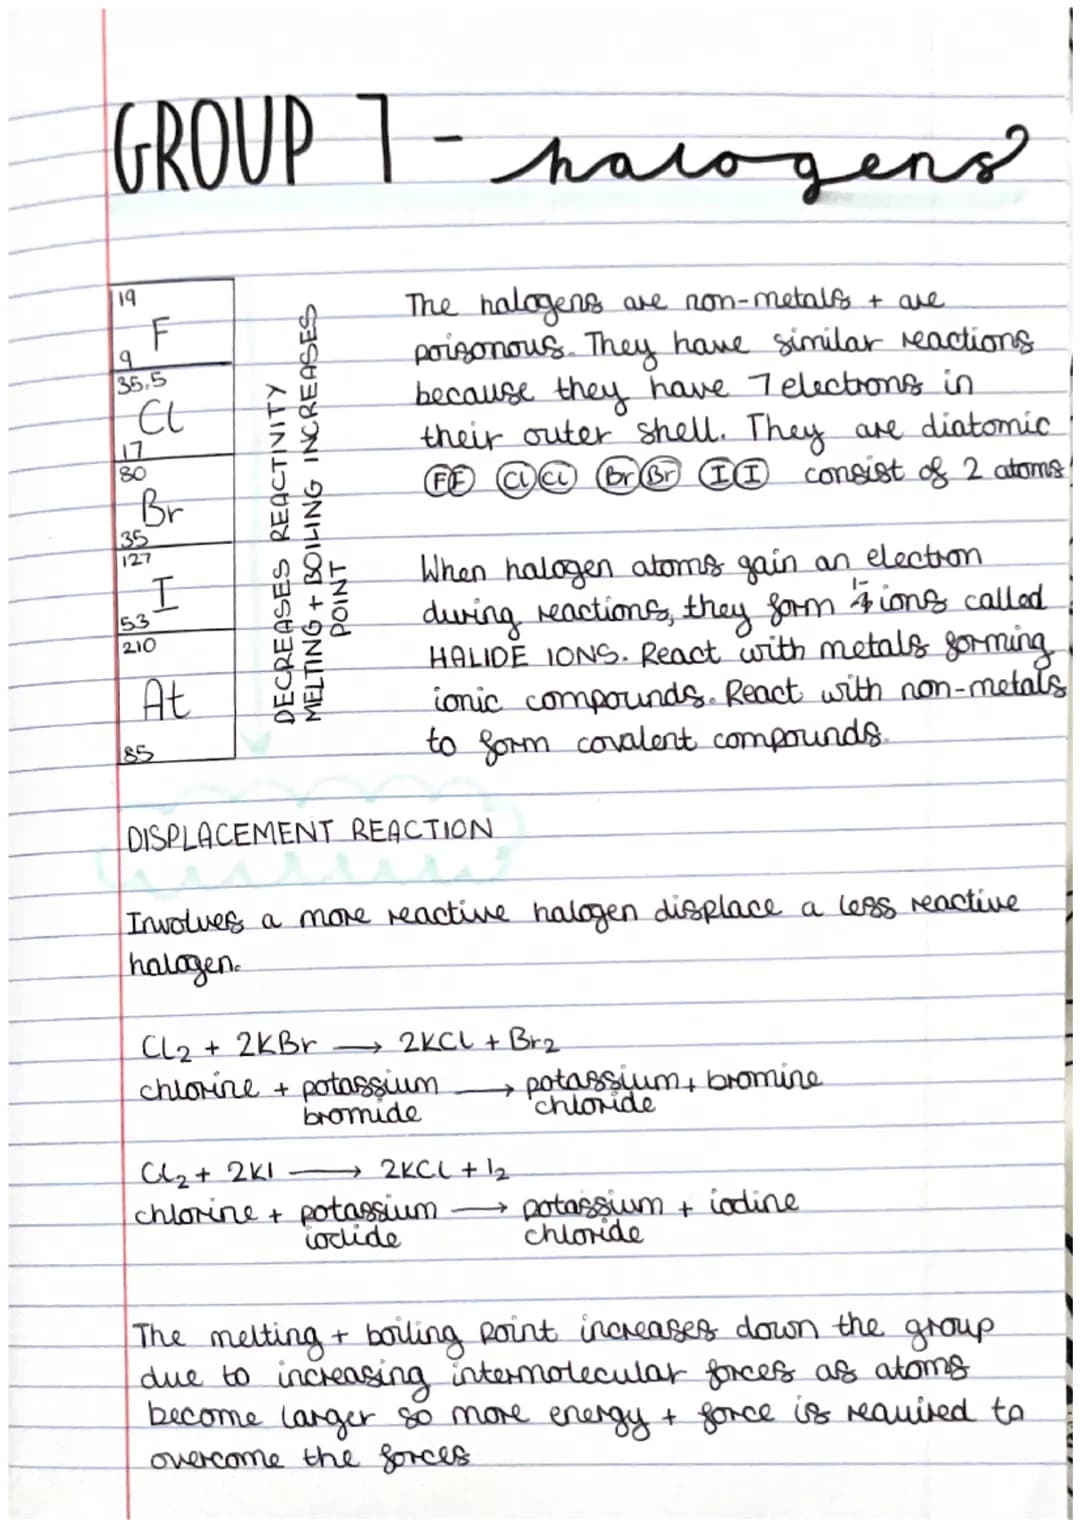 GROUP 7 - halogens
19
F
9
35.5
Cl
17
80
Br
35
127
I
53
210
At
85
DECREASES REACTIVITY
MELTING + BOILING INCREASES
POINT
The halogens are non-metals + are
poisonous. They have similar reactions
because they have 7 electrons in
their outer shell. They are diatomic
FF ClCl BrBr II consist of 2 atoms
When halogen atoms gain an electron
during reactions, they form 1- ions called
HALIDE IONS. React with metals forming
ionic compounds. React with non-metals
to form covalent compounds.
DISPLACEMENT REACTION
Involves a more reactive halogen displace a less reactive
halogen.
Cl2 + 2KBr → 2KCl + Br2
chlorine + potassium → potassium + bromine
bromide chloride
Cl2 + 2KI → 2KCl + I2
chlorine + potassium → potassium + iodine
iodide chloride
The melting + boiling point increases down the group
due to increasing intermolecular forces as atoms
become larger so more energy + force is required to
overcome the forces